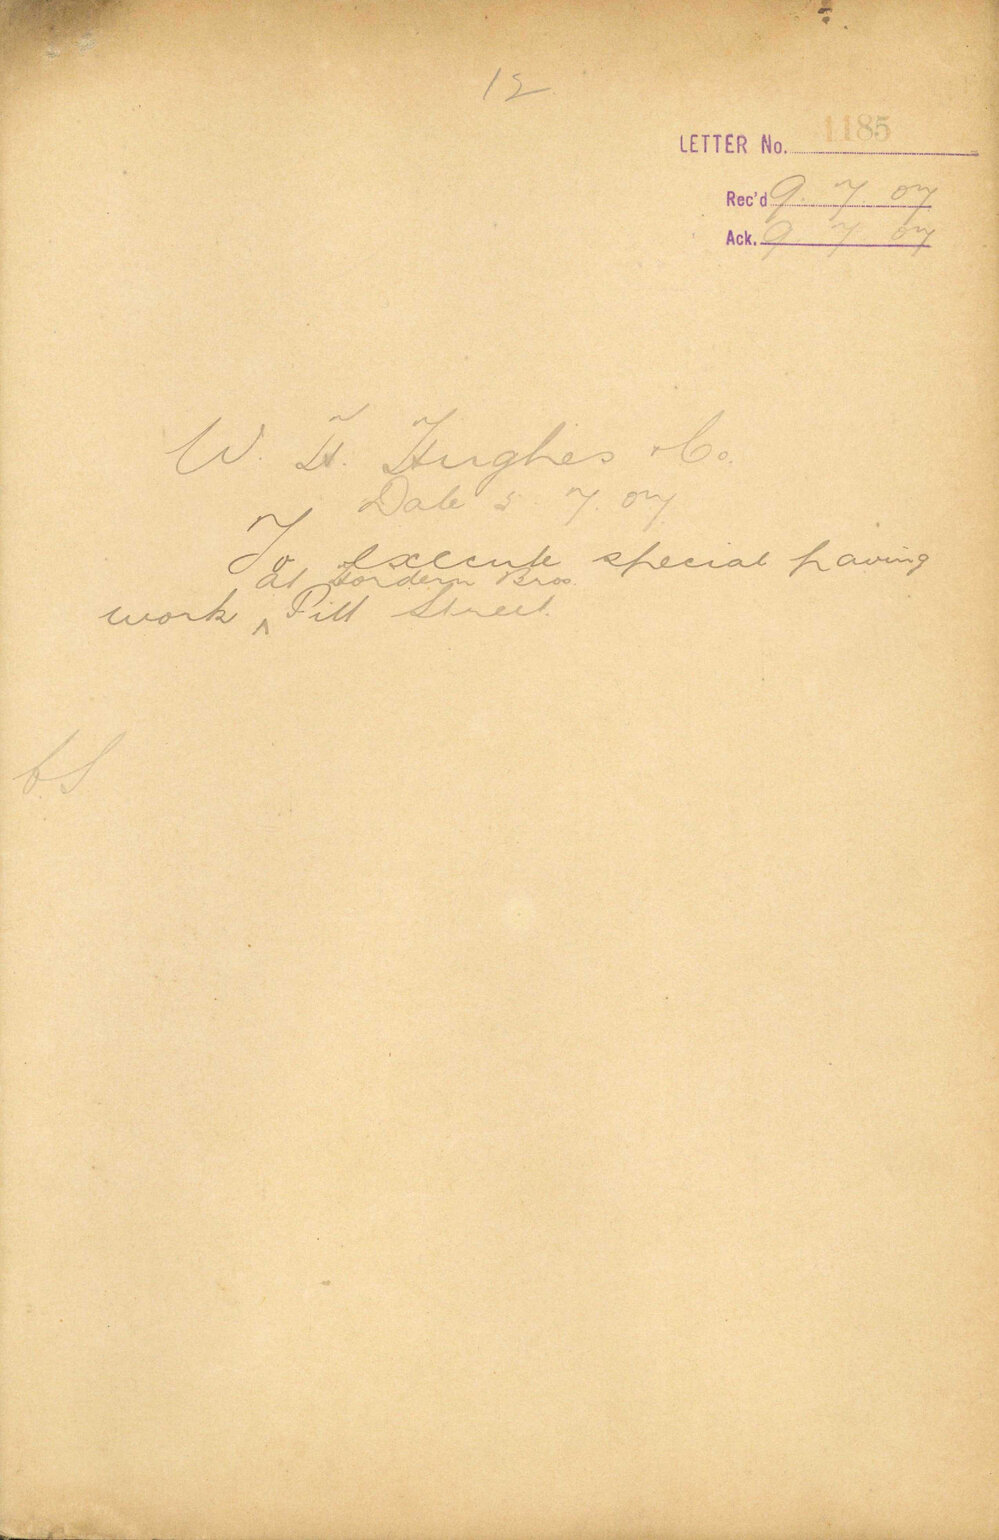 12
LETTER No. 1185
Rec'd 9. 7 07
Ack. 9 7 07
W. H. Hughes & Co.
Date 5. 7. 07
To execute special paving
at Hordern Bros.
work ^ Pitt Street.